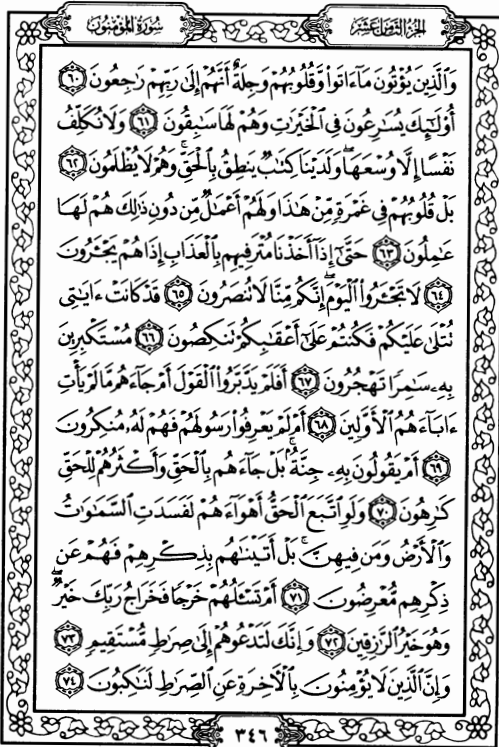 سُورَةُ المُؤْمِنُون
الجُزءُ الثَّامِنَ عَشَرَ
وَٱلَّذِينَ يُؤْتُونَ مَآءَاتَواْ وَّقُلُوبُهُمْ وَجِلَةٌ أَنَّهُمْ إِلَىٰ رَبِّهِمْ رَٰجِعُونَ ٦٠
أُوْلَٰٓئِكَ يُسَٰرِعُونَ فِى ٱلْخَيْرَٰتِ وَهُمْ لَهَا سَٰبِقُونَ ٦١ وَلَا نُكَلِّفُ
نَفْسًا إِلَّا وُسْعَهَا ۖ وَلَدَيْنَا كِتَٰبٌ يَنطِقُ بِٱلْحَقِّ ۚ وَهُمْ لَا يُظْلَمُونَ ٦٢
بَلْ قُلُوبُهُمْ فِى غَمْرَةٍ مِّنْ هَٰذَا وَلَهُمْ أَعْمَٰلٌ مِّن دُونِ ذَٰلِكَ هُمْ لَهَا
عَٰمِلُونَ ٦٣ حَتَّىٰٓ إِذَآ أَخَذْنَا مُتْرَفِيهِم بِٱلْعَذَابِ إِذَا هُمْ يَجْـَٔرُونَ
٦٤ لَا تَجْـَٔرُواْ ٱلْيَوْمَ ۖ إِنَّكُم مِّنَّا لَا تُنصَرُونَ ٦٥ قَدْ كَانَتْ ءَايَٰتِى
تُتْلَىٰ عَلَيْكُمْ فَكُنتُمْ عَلَىٰٓ أَعْقَٰبِكُمْ تَنكِصُونَ ٦٦ مُسْتَكْبِرِينَ
بِهِۦ سَٰمِرًا تَهْجُرُونَ ٦٧ أَفَلَمْ يَدَّبَّرُواْ ٱلْقَوْلَ أَمْ جَآءَهُم مَّا لَمْ يَأْتِ
ءَابَآءَهُمُ ٱلْأَوَّلِينَ ٦٨ أَمْ لَمْ يَعْرِفُواْ رَسُولَهُمْ فَهُمْ لَهُۥ مُنكِرُونَ
٦٩ أَمْ يَقُولُونَ بِهِۦ جِنَّةٌۢ ۚ بَلْ جَآءَهُم بِٱلْحَقِّ وَأَكْثَرُهُمْ لِلْحَقِّ
كَٰرِهُونَ ٧٠ وَلَوِ ٱتَّبَعَ ٱلْحَقُّ أَهْوَآءَهُمْ لَفَسَدَتِ ٱلسَّمَٰوَٰتُ
وَٱلْأَرْضُ وَمَن فِيهِنَّ ۚ بَلْ أَتَيْنَٰهُم بِذِكْرِهِمْ فَهُمْ عَن
ذِكْرِهِم مُّعْرِضُونَ ٧١ أَمْ تَسْـَٔلُهُمْ خَرْجًا فَخَرَاجُ رَبِّكَ خَيْرٌ ۖ
وَهُوَ خَيْرُ ٱلرَّٰزِقِينَ ٧٢ وَإِنَّكَ لَتَدْعُوهُمْ إِلَىٰ صِرَٰطٍ مُّسْتَقِيمٍ ٧٣
وَإِنَّ ٱلَّذِينَ لَا يُؤْمِنُونَ بِٱلْأَخِرَةِ عَنِ ٱلصِّرَٰطِ لَنَٰكِبُونَ ٧٤
٣٤٦